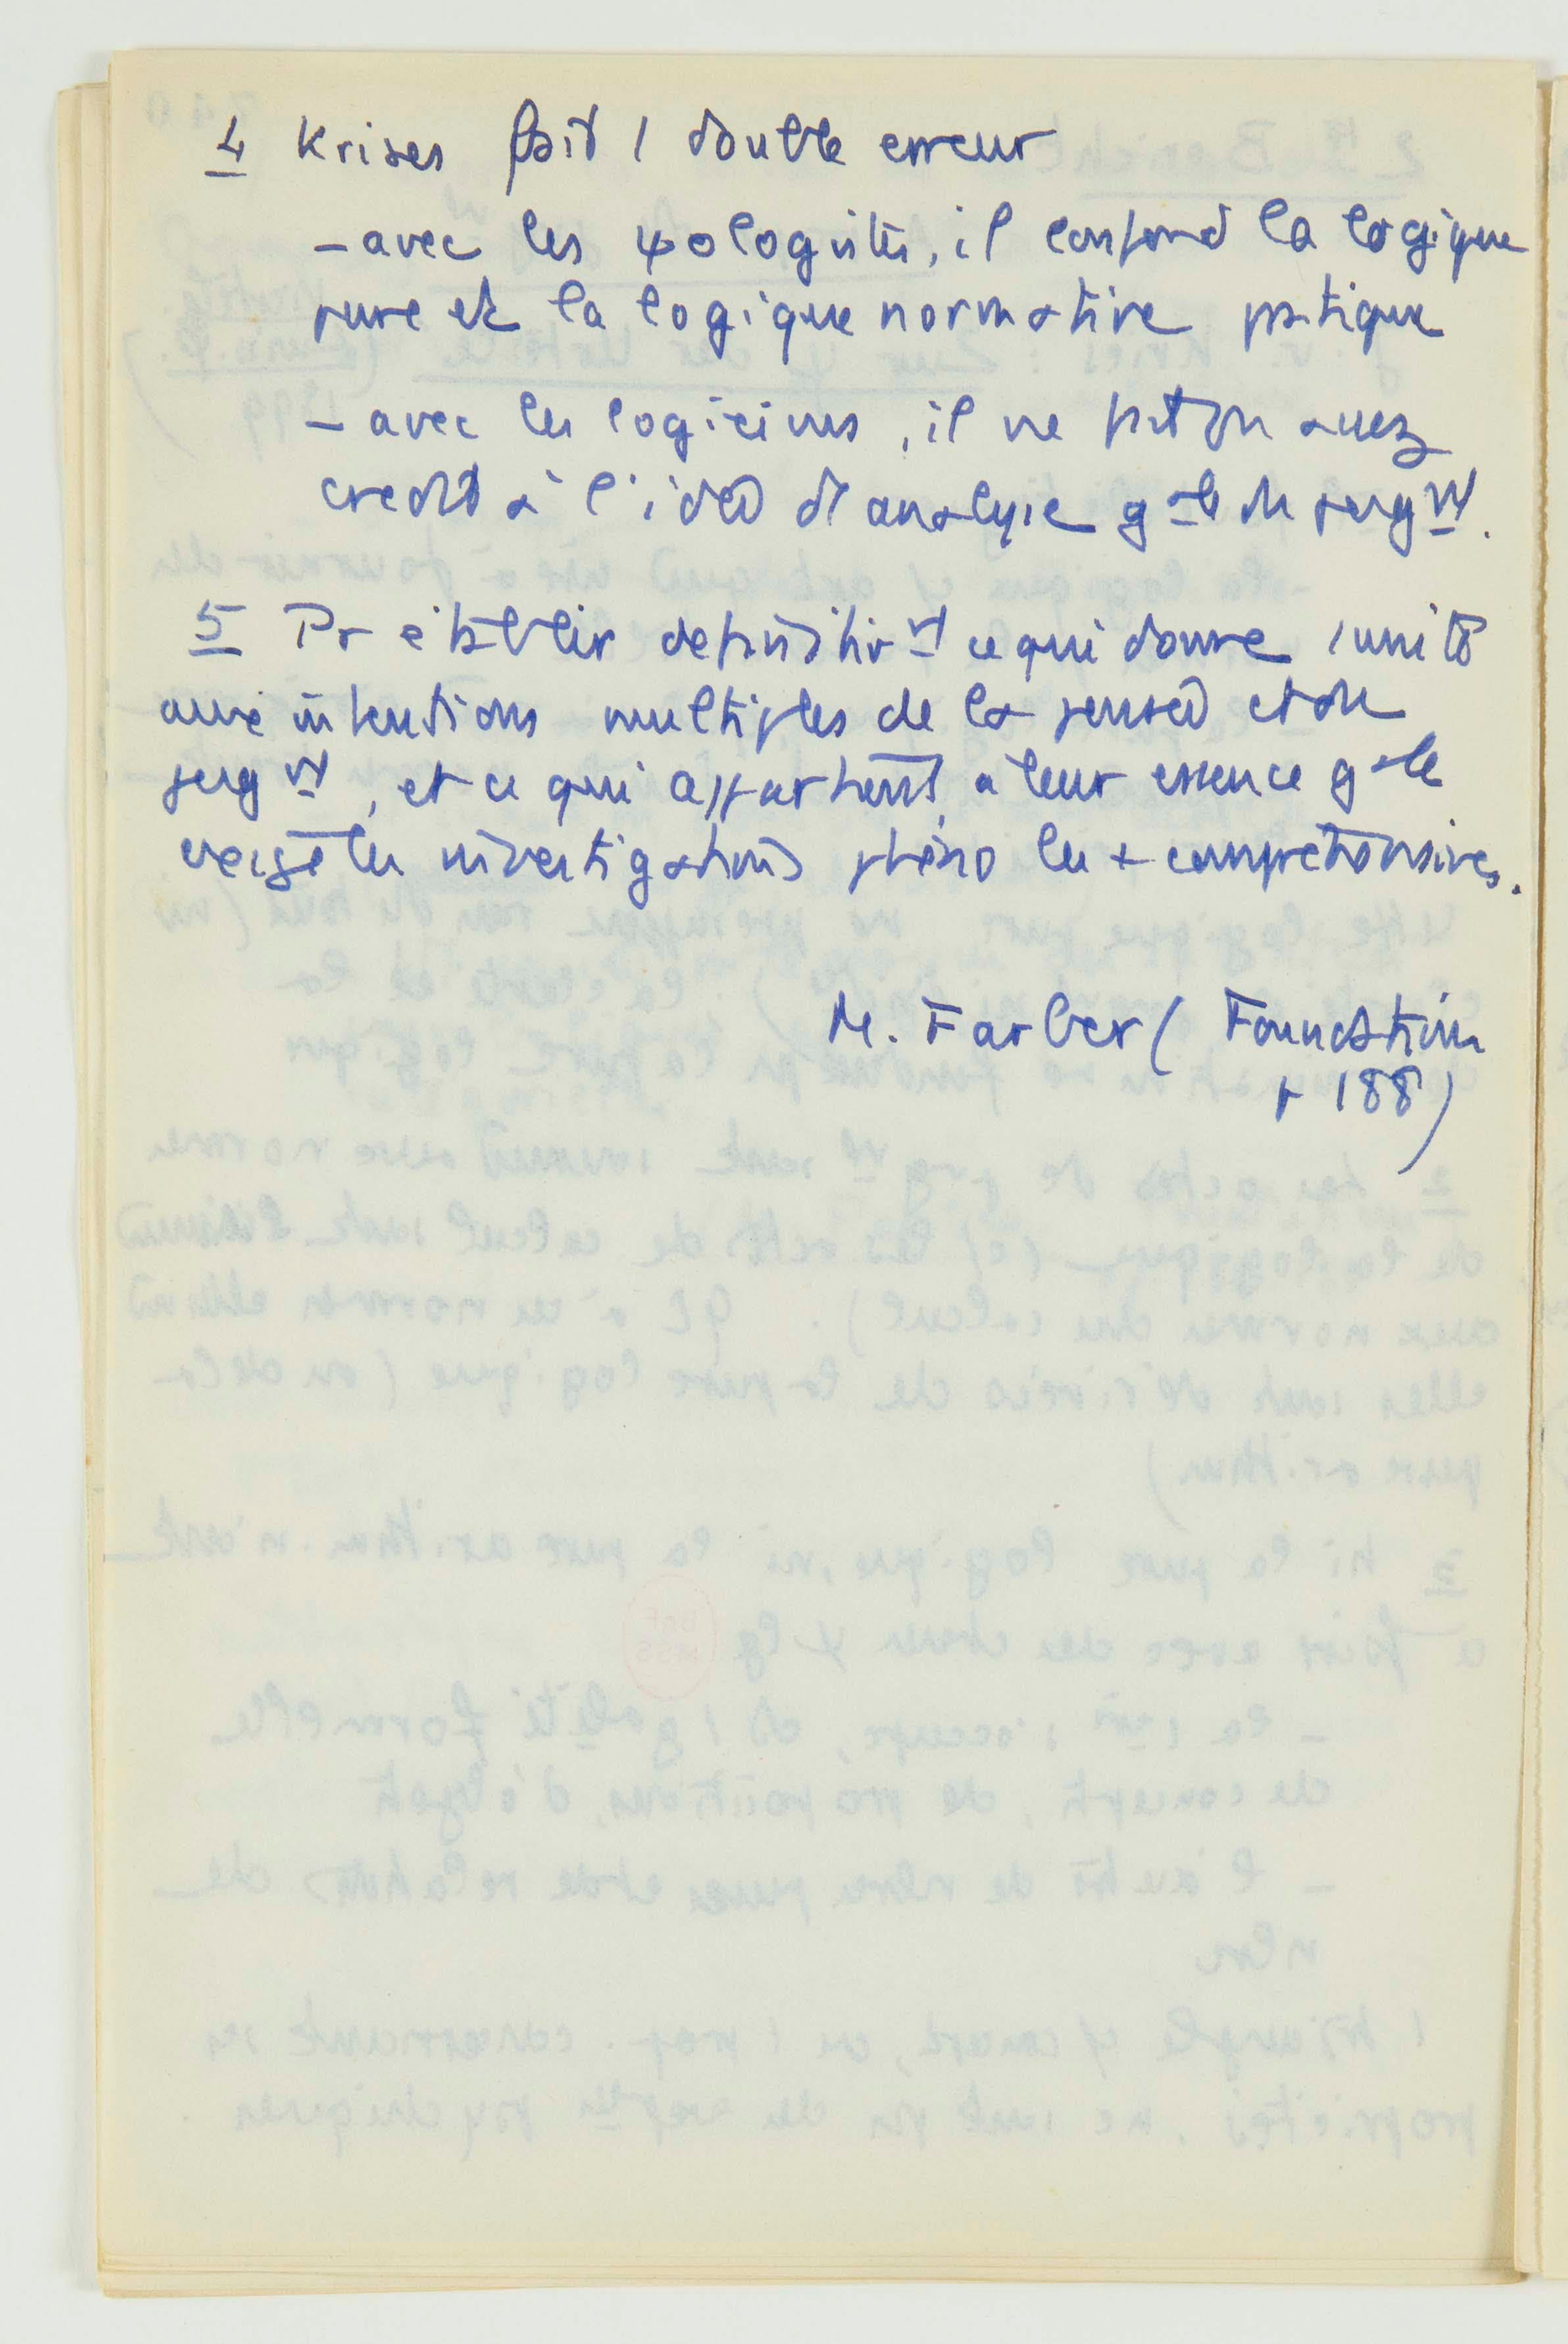 4 Krises fait 1 double erreur
- avec les ψologistes, il confond la logique
pure et la logique normative pratique
- avec les logiciens, il ne fait pas assez
credit à l'idée d'analyse gale du jugmt.
5 Pr établir définitivmt ce qui donne 1 unité
aux intentions multiples de la pensée et du
jugmt, et ce qui appartient à leur essence gale
exige les investigations phéno les + compréhensives.
M. Farber ( Foundation
p 188 )